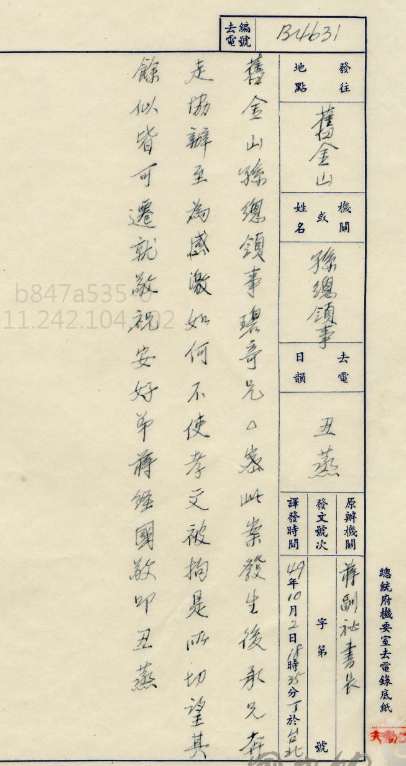 總統府機要室去電錄底紙
去電編號 B4631
發往地點 舊金山
機關或姓名 孫總領事
去電日韻 丑蒸
原辦機關 蔣副祕書長
發文號次 字第 號
譯發時間 49年10月2日18時35分丁於台北
舊金山孫總領事碧奇兄△密此案發生後承兄奔
走協辦至為感激如何不使孝文被拘是所切望其
餘似皆可遷就敬祝安好弟蔣經國敬叩丑蒸
b847a535
11.242.104.202